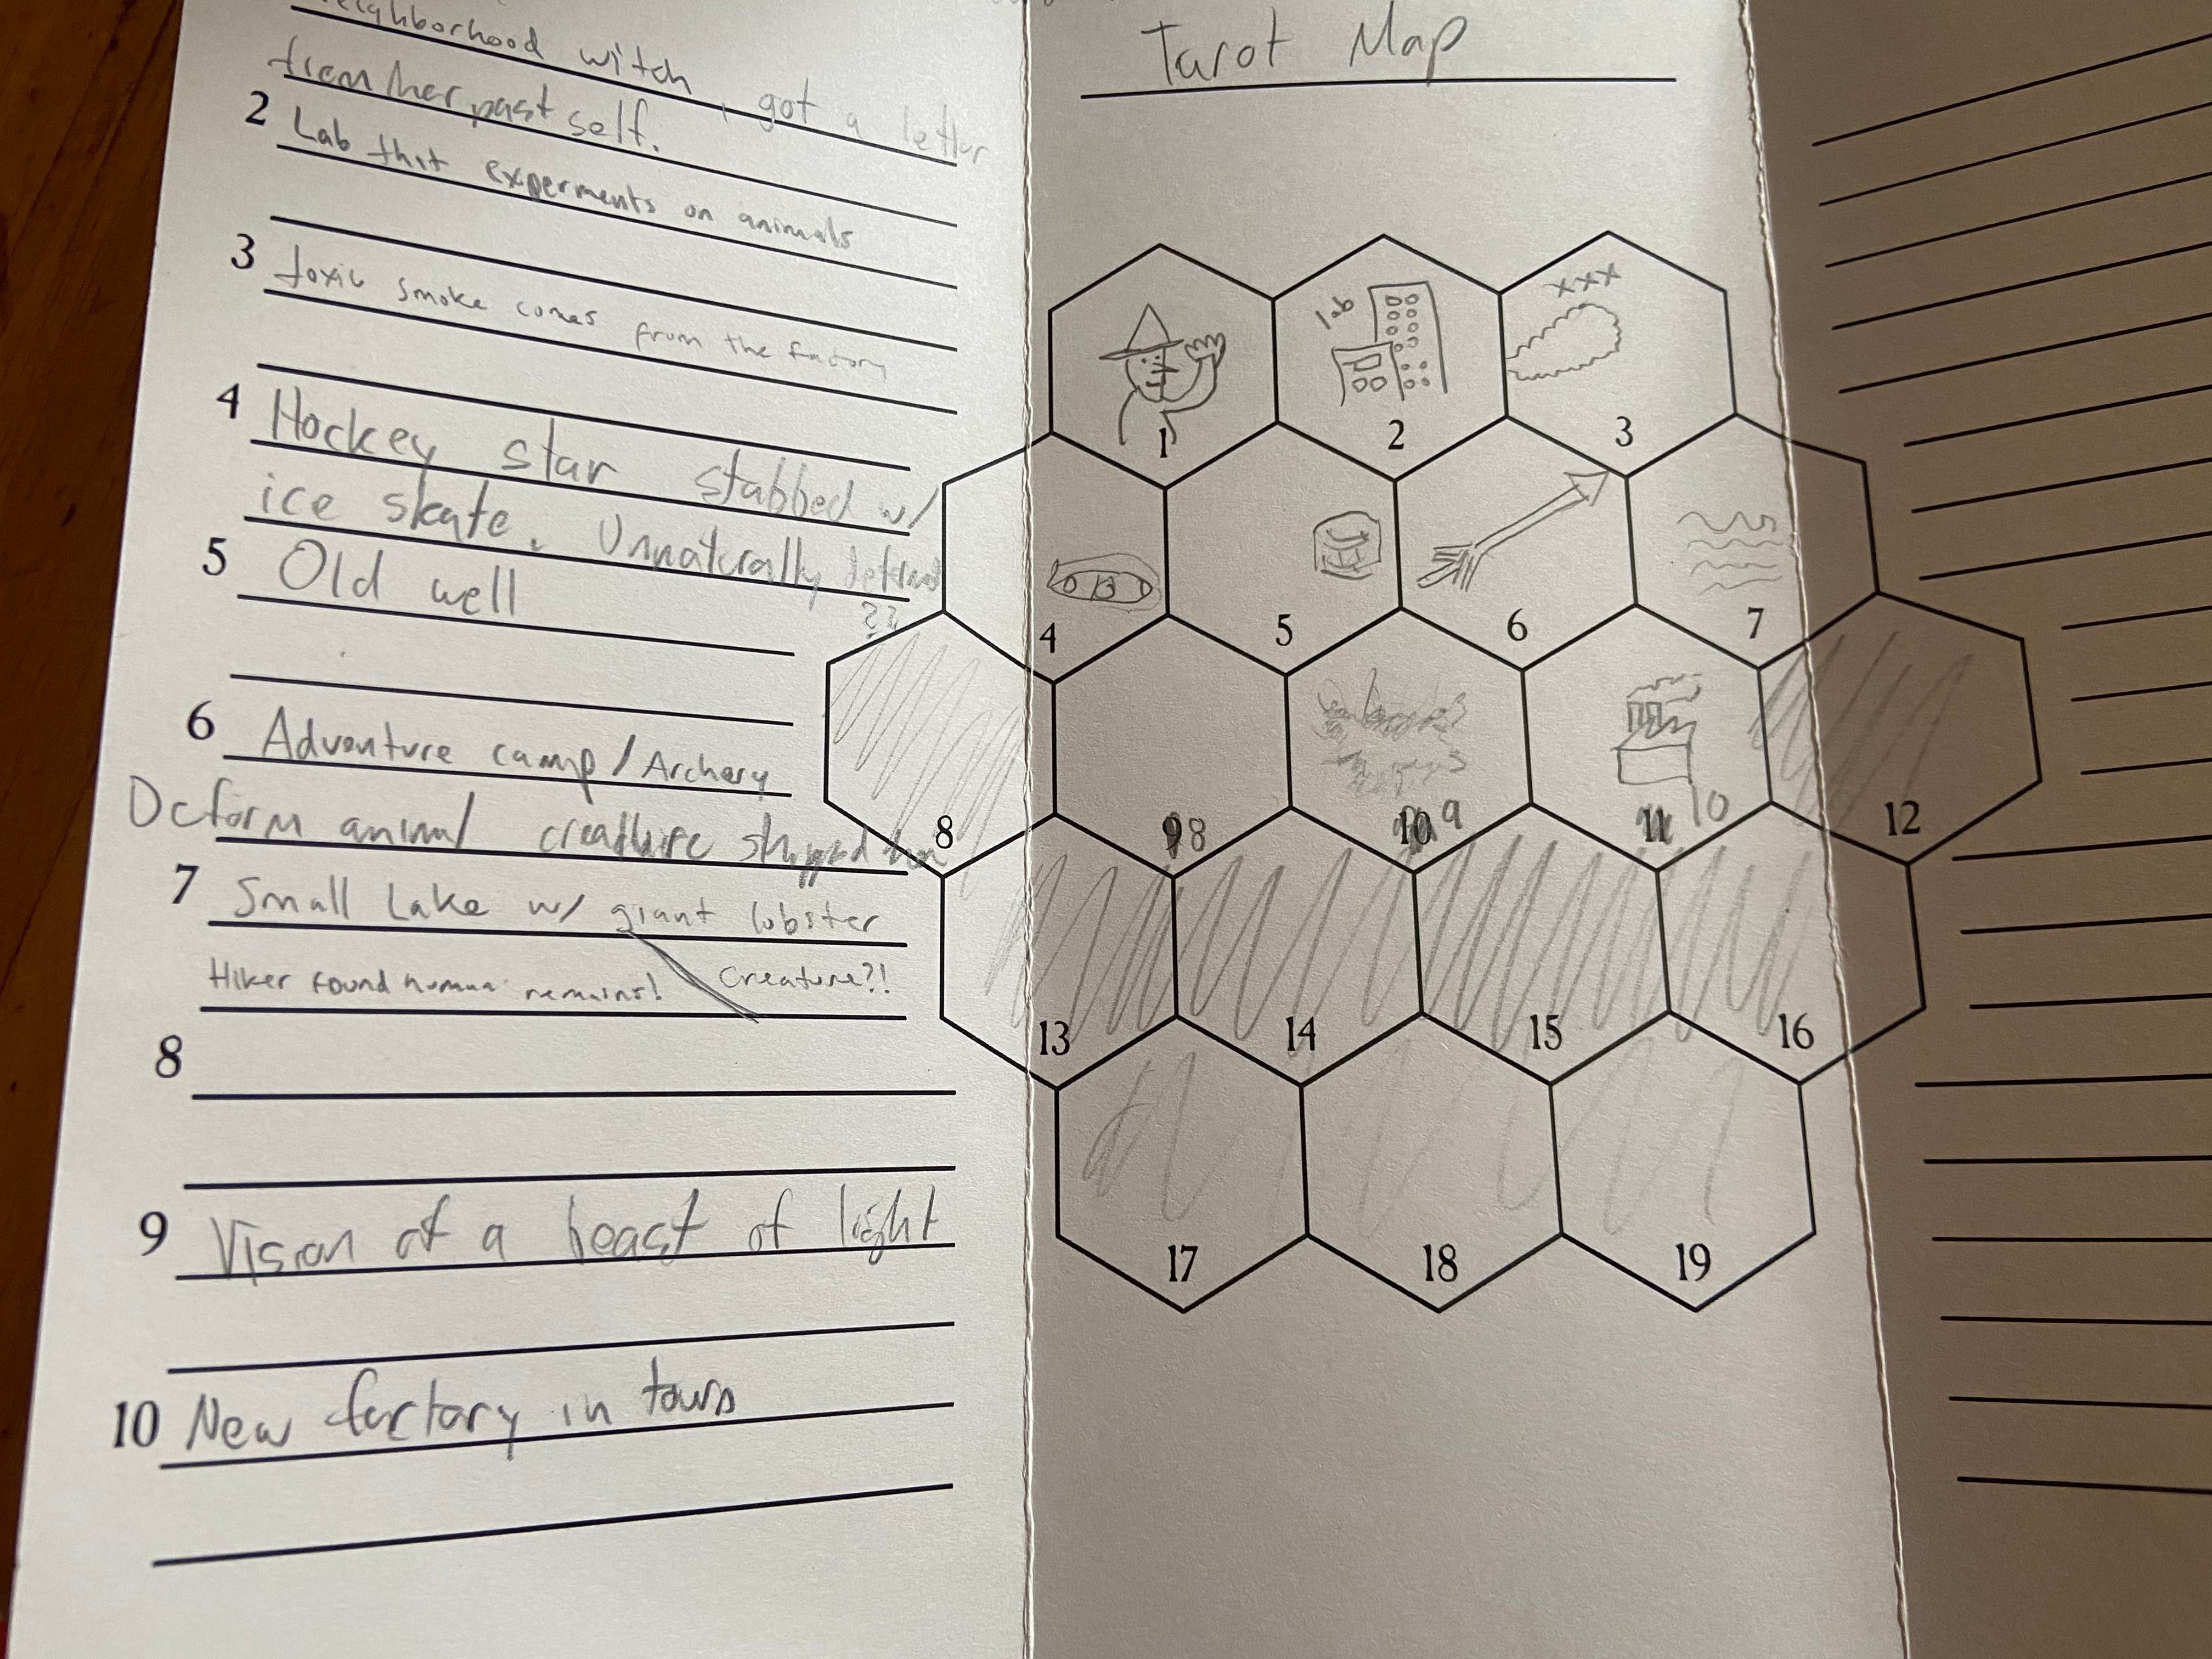 neighborhood witch, got a letter
from her past self.
2 Lab that experments on animals
3 toxic smoke comes from the factory
4 Hockey star stabbed w/
ice skate. Unnaturally
??
5 Old well
6 Adventure camp / Archery
Deform animal creature
7 Small Lake w/ giant lobster
Hiker found human remains! Creature?!
8
9 Vision of a beast of light
10 New factory in town
Tarot Map
1
lab
2
xxx
3
4
5
6
7
8
9 8
10 9
11 10
12
13
14
15
16
17
18
19